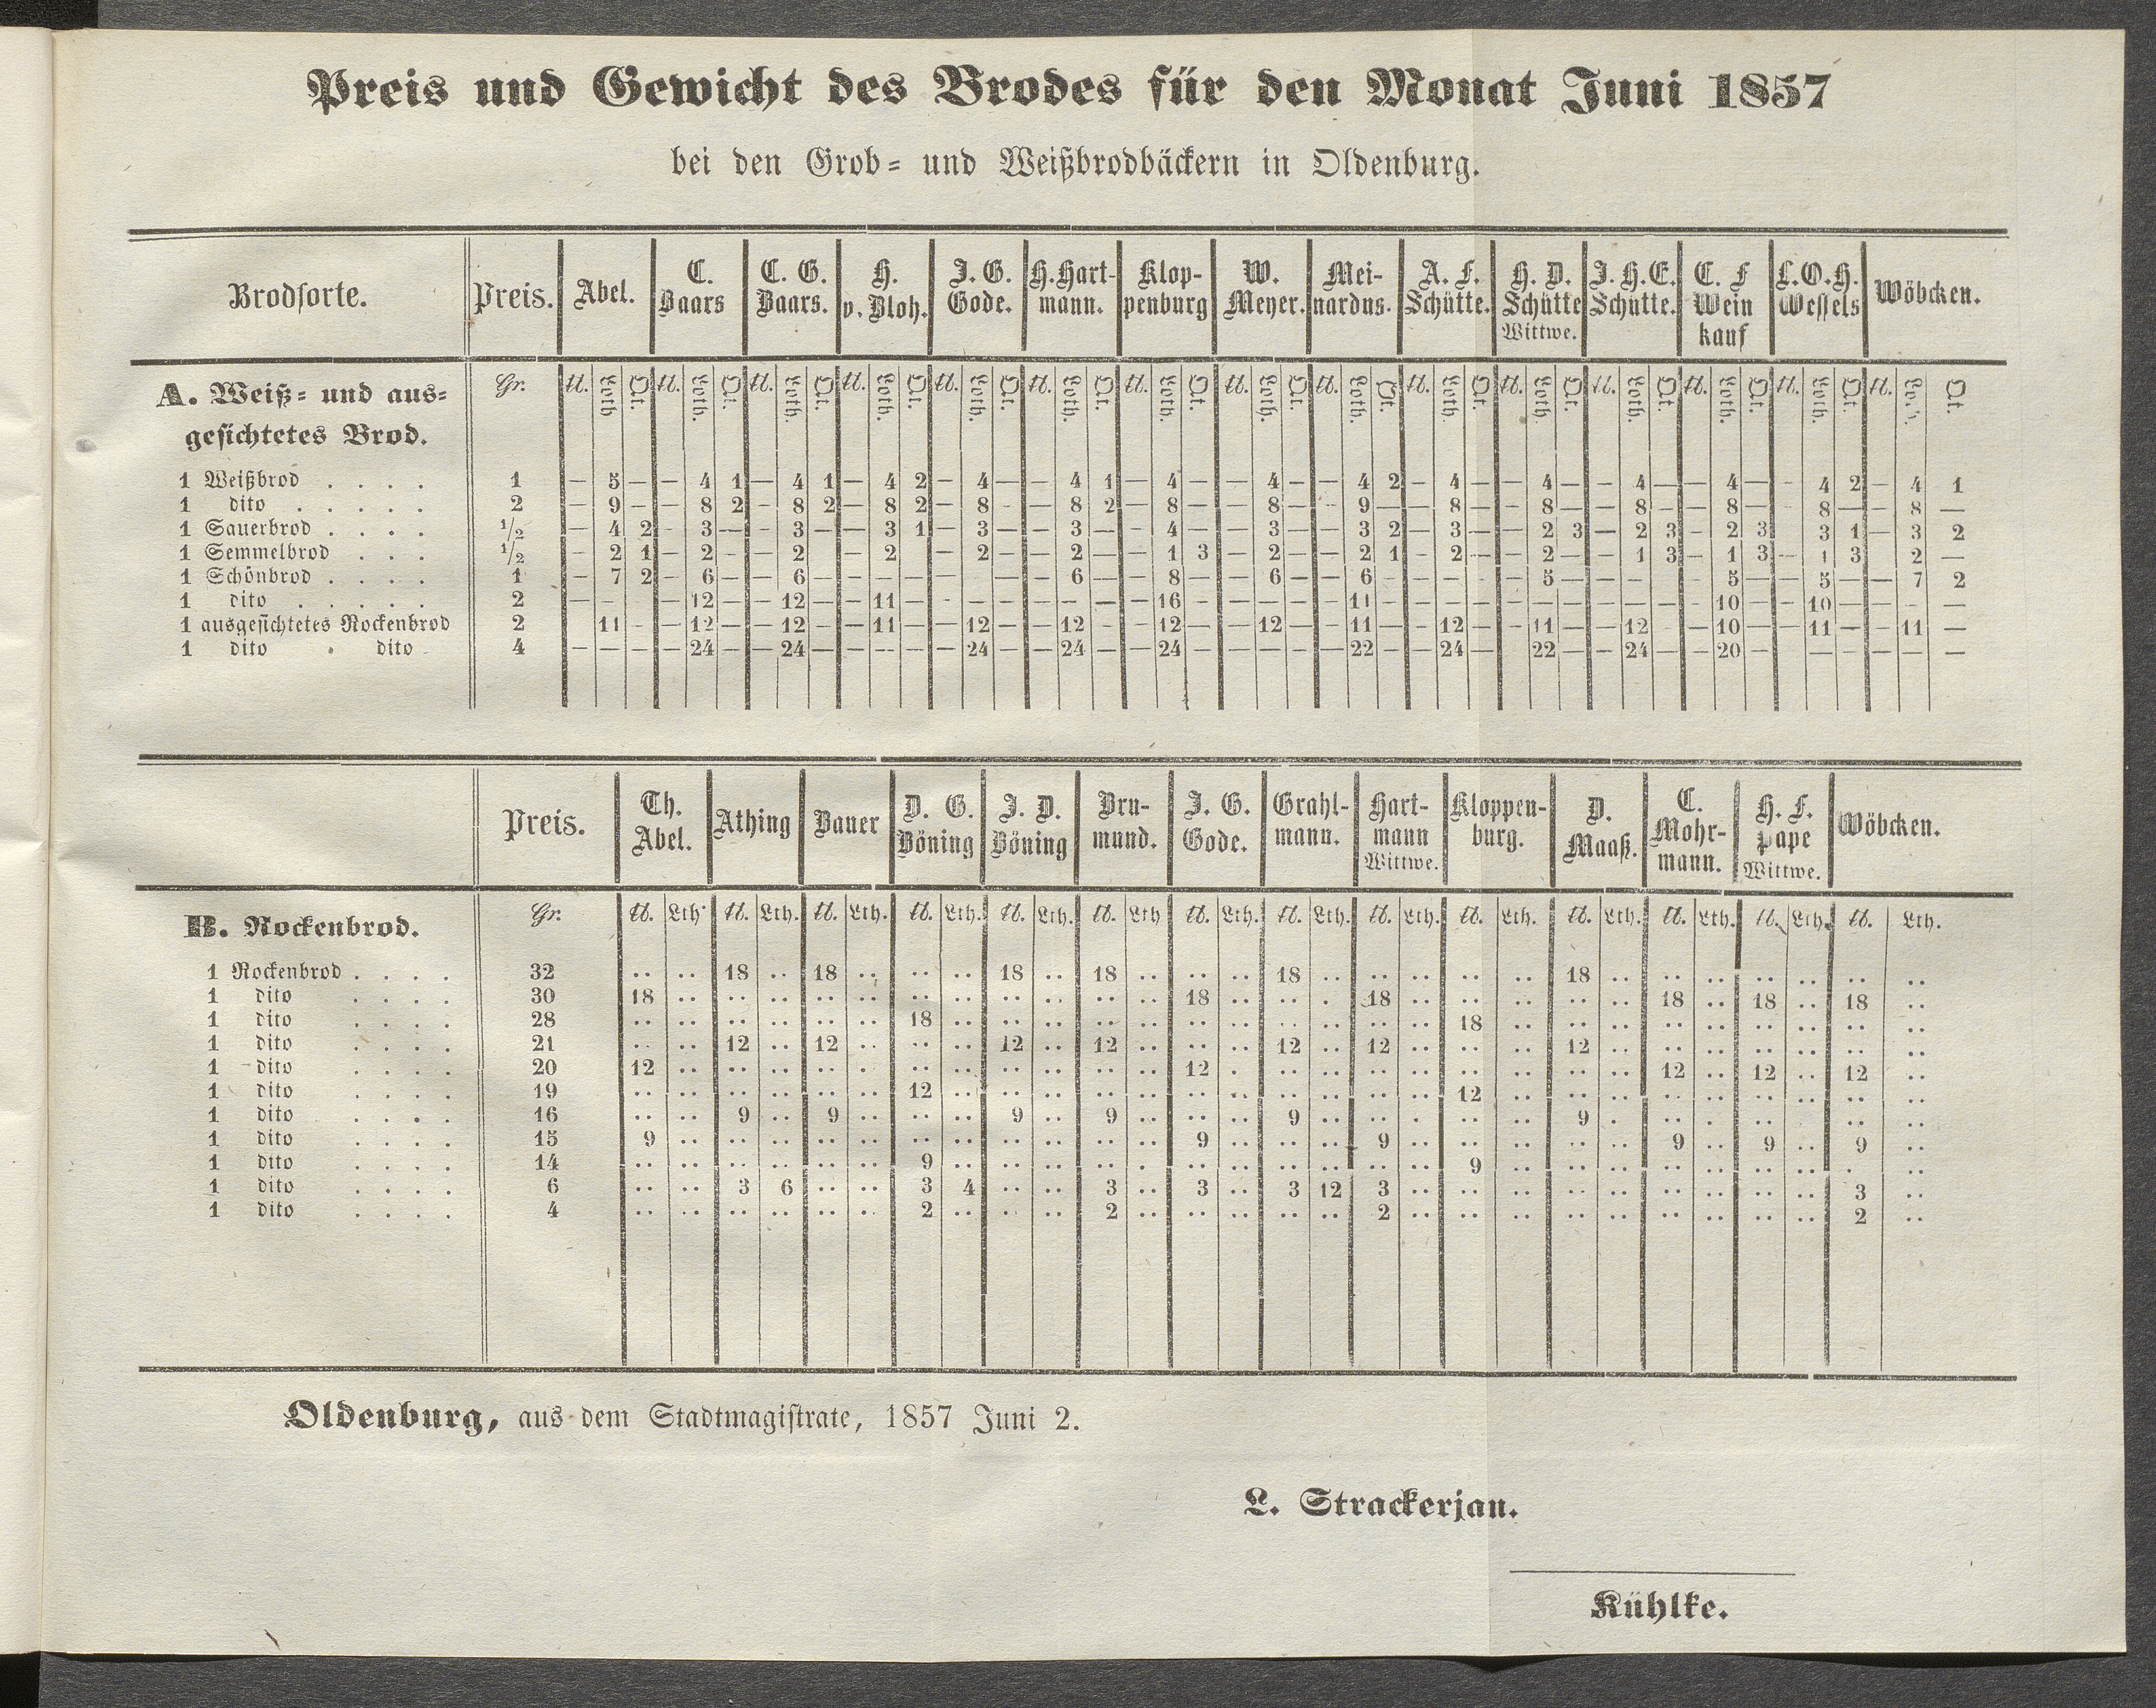 Preis und Gewicht des Brodes für den Monat Juni 1857
bei den Grob- und Weißbrodbäckern in Oldenburg.
Brodsorte. Preis. Abel. C. Baars C. G. Baars. H. v. Bloh. J. G. Gode. H. Hart-mann. Klop-penburg W. Meyer. Mei-nardus. A. F. Schütte. H. D. Schütte Wittwe. J. H. E. Schütte. C. F Wein kauf L. O. H. Wessels Wöbcken.
A. Weiß- und aus- Gr. ℔. Loth Qt. ℔. Loth. Qt. ℔. Loth. Qt. ℔. Loth. Qt. ℔. Loth. Qt. ℔. Loth. Qt. ℔. Loth. Qt. ℔. Loth. Qt. ℔. Loth. Qt. ℔. Loth Qt. ℔. Loth. Qt. ℔. Loth. Qt. ℔. Loth. Qt. ℔. Loth. Qt. ℔. Qt.
gesichtetes Brod.
1 Weißbrod . . . . 1 — 5 — — 4 1 — 4 1 — 4 2 — 4 — — 4 1 — 4 — — 4 — — 4 2 — 4 — — 4 — — 4 — — 4 — - 4 2 — 4 1
1 dito . . . . . 2 — 9 — — 8 2 - 8 2 — 8 2 — 8 - — 8 2 — 8 — — 8 — - 9 — — 8 — — 8 — — 8 — — 8 — - 8 — — 8 —
1 Sauerbrod . . . . 1/2 — 4 2 - 3 — — 3 — — 3 1 — 3 — — 3 — 4 — — 3 — — 3 2 — 3 — — 2 3 — 2 3 - 2 3 3 1 — 3 2
1 Semmelbrod . . . 1/2 - 2 1 — 2 - — 2 — 2 — 2 — — 2 — — 1 3 — 2 — — 2 1 - 2 — — 2 — — 1 3 — 1 3 - 1 3 2 —
1 Schönbrod . . . . 1 — 7 2 — 6 — — 6 — — — — — — — 6 — — 8 — — 6 — — 6 — — — — — 5 — — — — 5 — — 5 — — 7 2
1 dito . . . . . 2 — - — 12 — — 12 — — 11 — - — — — — — — 16 - — — — — 11 — — — — — — — — — — - 10 — — 10 — — - —
1 ausgesichtetes Rockenbrod 2 11 - — 12 — — 12 — — 11 — — 12 — — 12 - — 12 — — 12 — — 11 — — 12 — - 11 — — 12 - 10 — — 11 — - 11 —
1 dito . dito 4 — — — — 24 — — 24 — — - - — — 24 — — 24 — — 24 — — — — — 22 — — 24 — 22 — — 24 — — 20 — — — — — —
Preis. Th. Abel. Athing Bauer D. G. Böning J. D. Böning Bru-mund. J. G. Gode. Grahl-mann. Hart-mann Wittwe. Kloppen-burg. D. Maaß. C. Mohr-mann. H. F. Pape Wittwe. Wöbcken.
B. Rockenbrod. Gr. ℔. Lth. ℔. Lth. ℔. Lth. ℔. Lth. ℔. Lth. ℔. Lth ℔. Lth. ℔. Lth. ℔. Lth. ℔. Lth. ℔. Lth. ℔. Lth. ℔. Lth. ℔. Lth.
1 Rockenbrod . . . . 32 .. .. 18 .. 18 .. .. .. 18 .. 18 .. .. .. 18 .. .. .. .. .. 18 .. .. .. .. .. .. ..
1 dito . . . . 30 18 .. .. .. .. .. .. .. .. .. .. .. 18 .. .. . 18 .. .. .. .. .. 18 .. 18 .. 18 ..
1 dito . . . . 28 .. .. .. .. .. .. 18 .. .. .. .. .. .. .. .. .. .. .. 18 .. .. .. .. .. .. .. .. ..
1 dito . . . . 21 .. .. 12 .. 12 .. .. .. 12 .. 12 .. .. .. 12 .. 12 .. .. .. 12 .. .. .. .. .. .. ..
1 dito . . . . 20 12 .. .. .. .. . .. .. .. .. .. .. 12 . .. .. .. .. .. .. .. .. 12 .. 12 .. 12 ..
1 dito . . . . 19 .. .. .. .. .. .. 12 .. .. .. .. .. .. .. .. .. .. .. 12 .. .. .. .. .. .. .. .. ..
1 dito . . . . 16 .. .. 9 .. 9 .. .. .. 9 .. 9 .. .. .. 9 .. .. . .. .. 9 . .. . .. .. .. ..
1 dito . . . . 15 9 .. .. .. .. .. .. .. .. .. .. .. 9 .. .. .. 9 .. .. .. .. .. 9 .. 9 .. 9 ..
1 dito . . . . 14 .. .. .. .. .. .. 9 .. .. .. .. . .. .. .. .. .. .. 9 .. .. .. .. .. .. .. . ..
1 dito . . . . 6 .. .. 3 6 .. .. 3 4 .. .. 3 .. 3 .. 3 12 3 .. .. .. .. .. .. .. .. .. 3 ..
1 dito . . . . 4 .. .. .. .. .. .. 2 .. .. .. 2 .. .. .. .. .. 2 .. .. .. .. .. .. .. .. .. 2 ..
Oldenburg, aus dem Stadtmagistrate, 1857 Juni 2.
L. Strackerjan.
Kühlke.